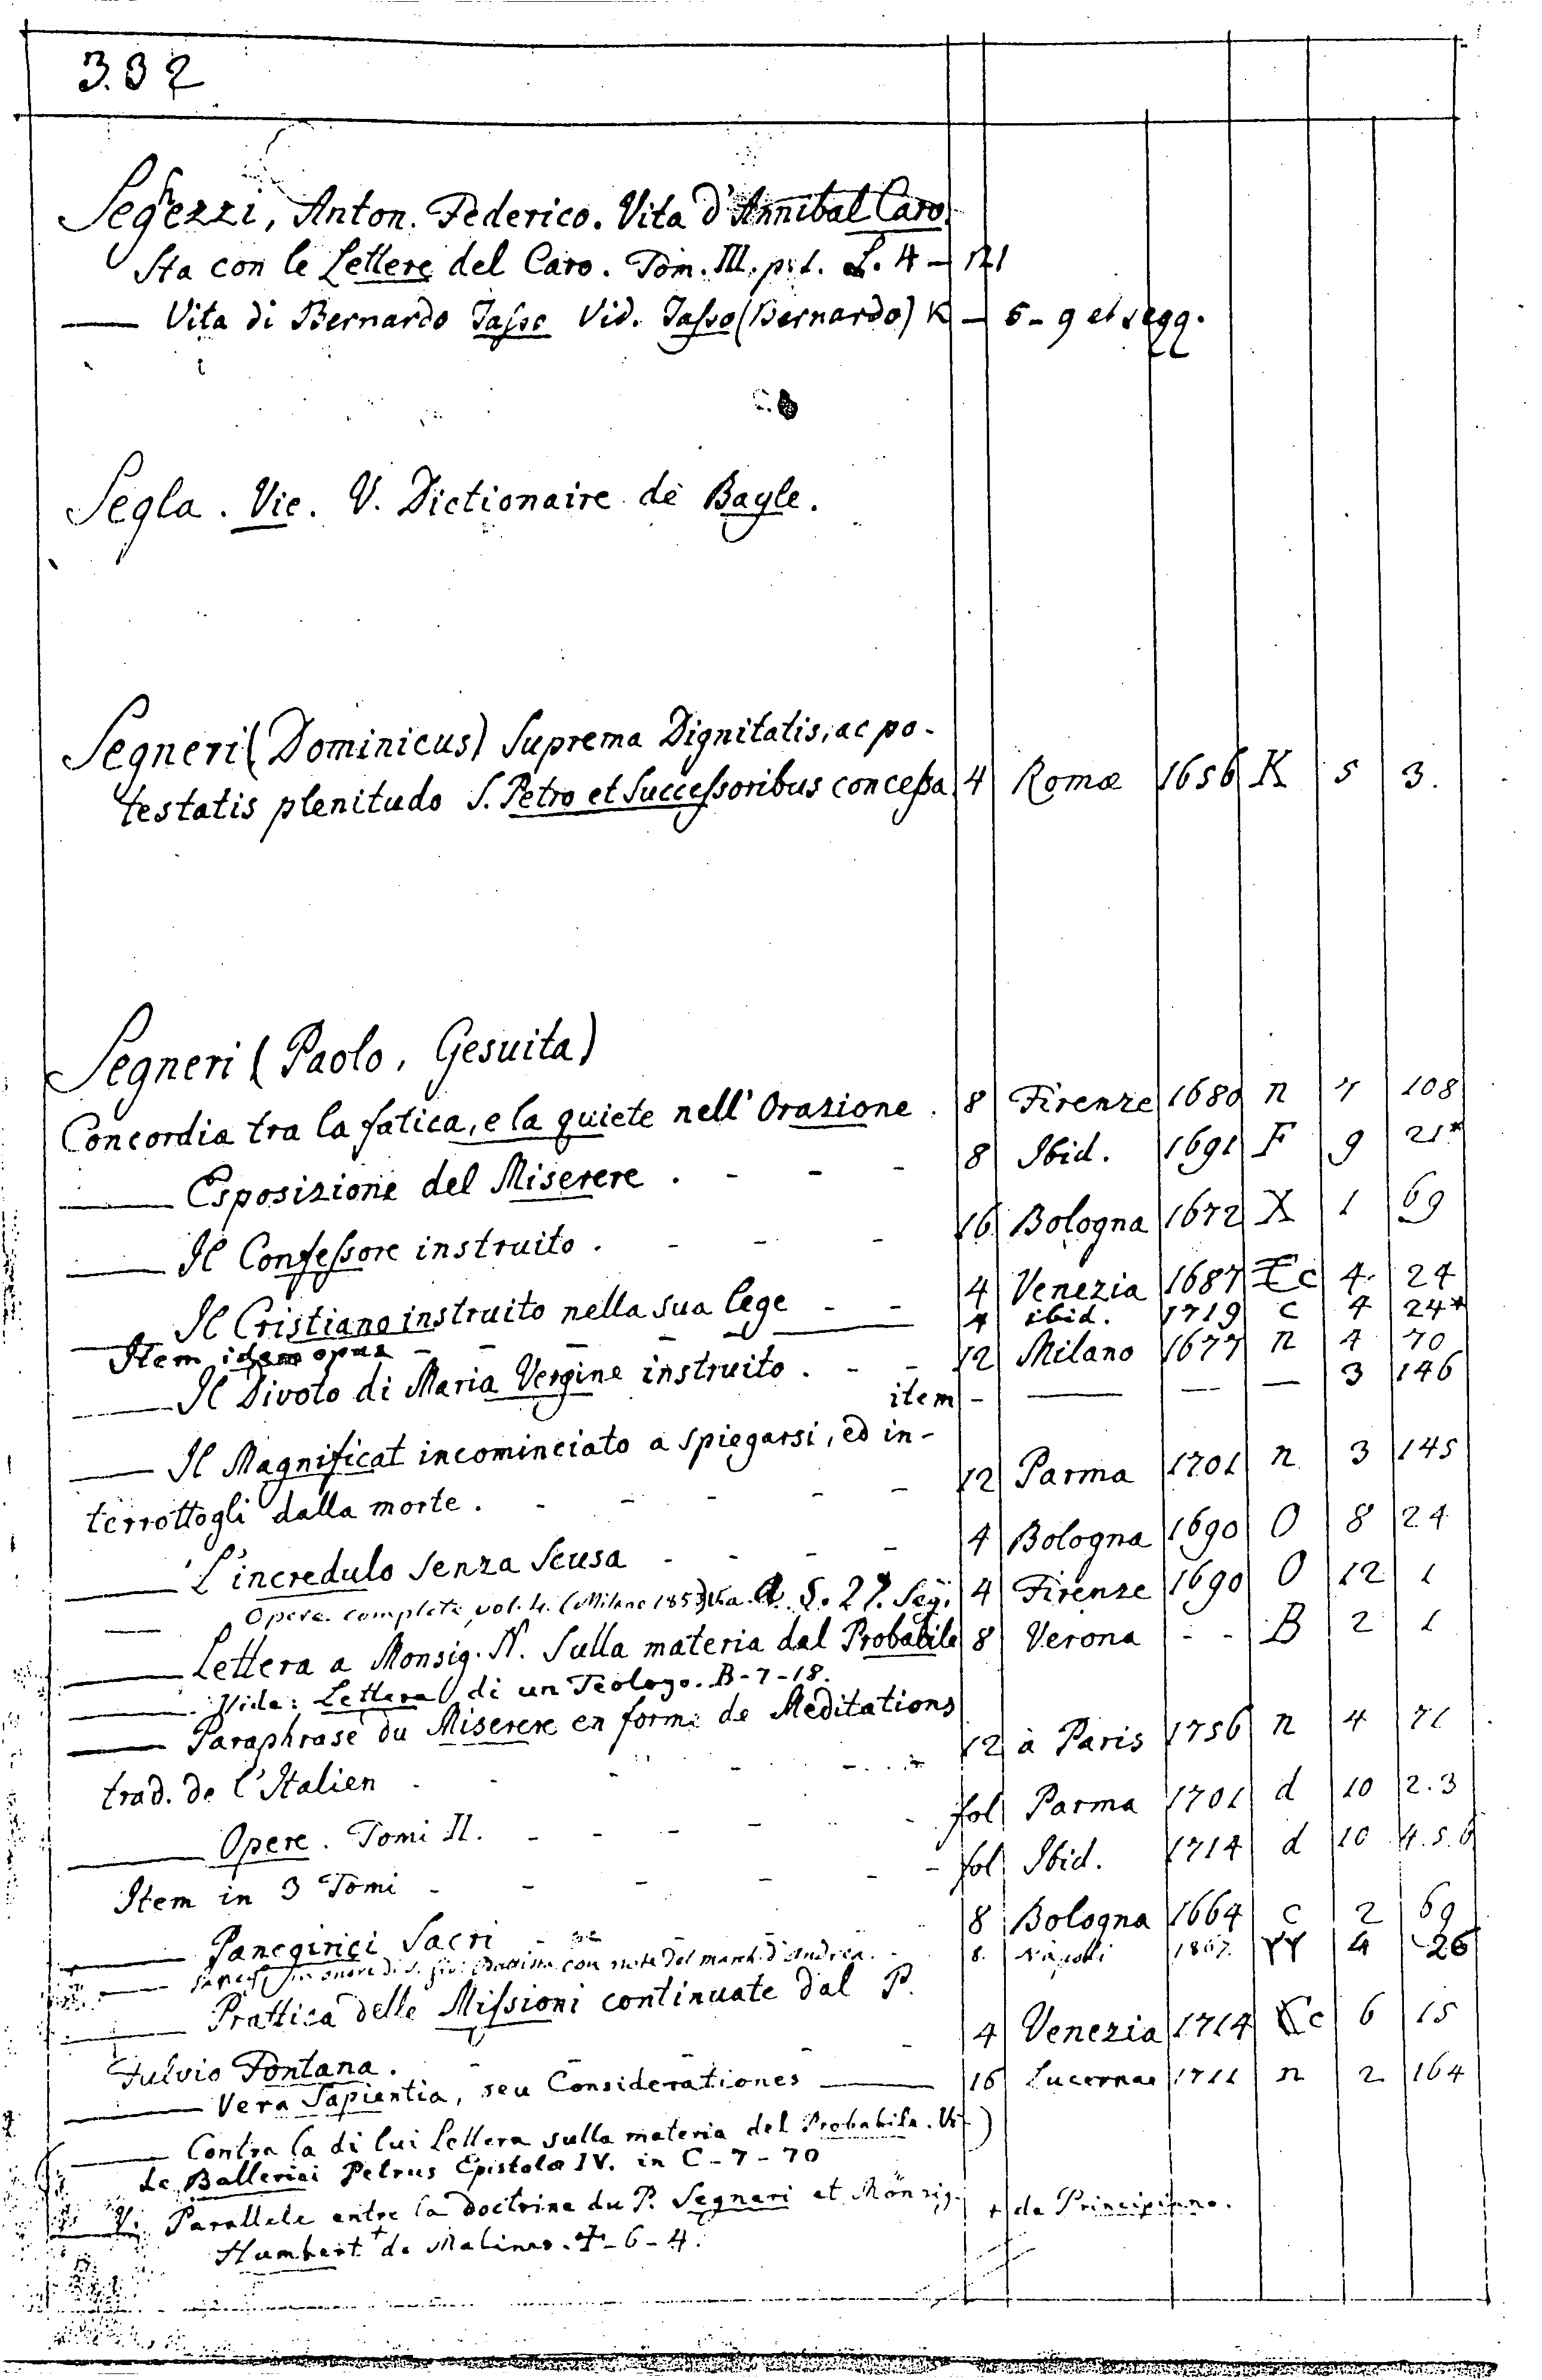 332
Segezzi, Anton. Federico. Vita d'Annibal Caro.
Sta con le Lettere del Caro. Tom. III. p. 1. L. 4 - 121
— Vita di Bernardo Tasso Vid. Tasso (Bernardo) K - 5 - 9 et segg.
Segla. Vie. V. Dictionaire de Bayle.
Segneri (Dominicus) Suprema Dignitatis, ac po-
testatis plenitudo S. Petro et Successoribus concessa 4 Romæ 1656 K 5 3.
Segneri (Paolo, Gesuita)
Concordia tra la fatica, e la quiete nell' Orazione. 8 Firenze 1680 n 7 108
— Esposizione del Miserere. - - - 8 Ibid. 1691 F 9 21*
— Il Confessore instruito. - - - 16 Bologna 1672 X 1 69
— Il Cristiano instruito nella sua lege - - 4 Venezia 1687 Cc 4 24
Item idem opus - - - - 4 ibid. 1719 c 4 24*
— Il Divoto di Maria Vergine instruito. - - 12 Milano 1677 n 4 70
item - — — — 3 146
— Il Magnificat incominciato a spiegarsi, ed in-
terrottogli dalla morte. - - - - - 12 Parma 1701 n 3 145
— L'incredulo senza scusa - - - - 4 Bologna 1690 O 8 24
— Opere complete vol. 4. (Milano 1853) S. 27. Seg. 4 Firenze 1690 O 12 1
— Lettera a Monsig. N. Sulla materia dal Probabile 8 Verona - - B 2 1
— Vide: Lettera di un Teologo. B-7-18.
— Paraphrase du Miserere en forme de Meditations
trad. de l'Italien - - - - - 12 à Paris 1756 n 4 71
— Opere. Tomi II. - - - - - fol Parma 1701 d 10 2.3
Item in 3 Tomi - - - - - fol Ibid. 1714 d 10 4.5.6
— Panegirici Sacri - - - - 8 Bologna 1664 c 2 69
— con note del march. d'Andrea. - 8. Napoli 1867. YY 4 26
— Prattica delle Missioni continuate dal P.
Fulvio Fontana. - - - - - 4 Venezia 1714 Cc 6 15
— Vera Sapientia, seu Considerationes — 16 Lucernae 1711 n 2 164
— Contra la di lui Lettera sulla materia del Probabile. Vi-
de Ballerini Petrus Epistolæ IV. in C-7-70
— V. Parallele entre la doctrine du P. Segneri et Monsig. + de Principiano.
Humbert + de Malines. T-6-4.